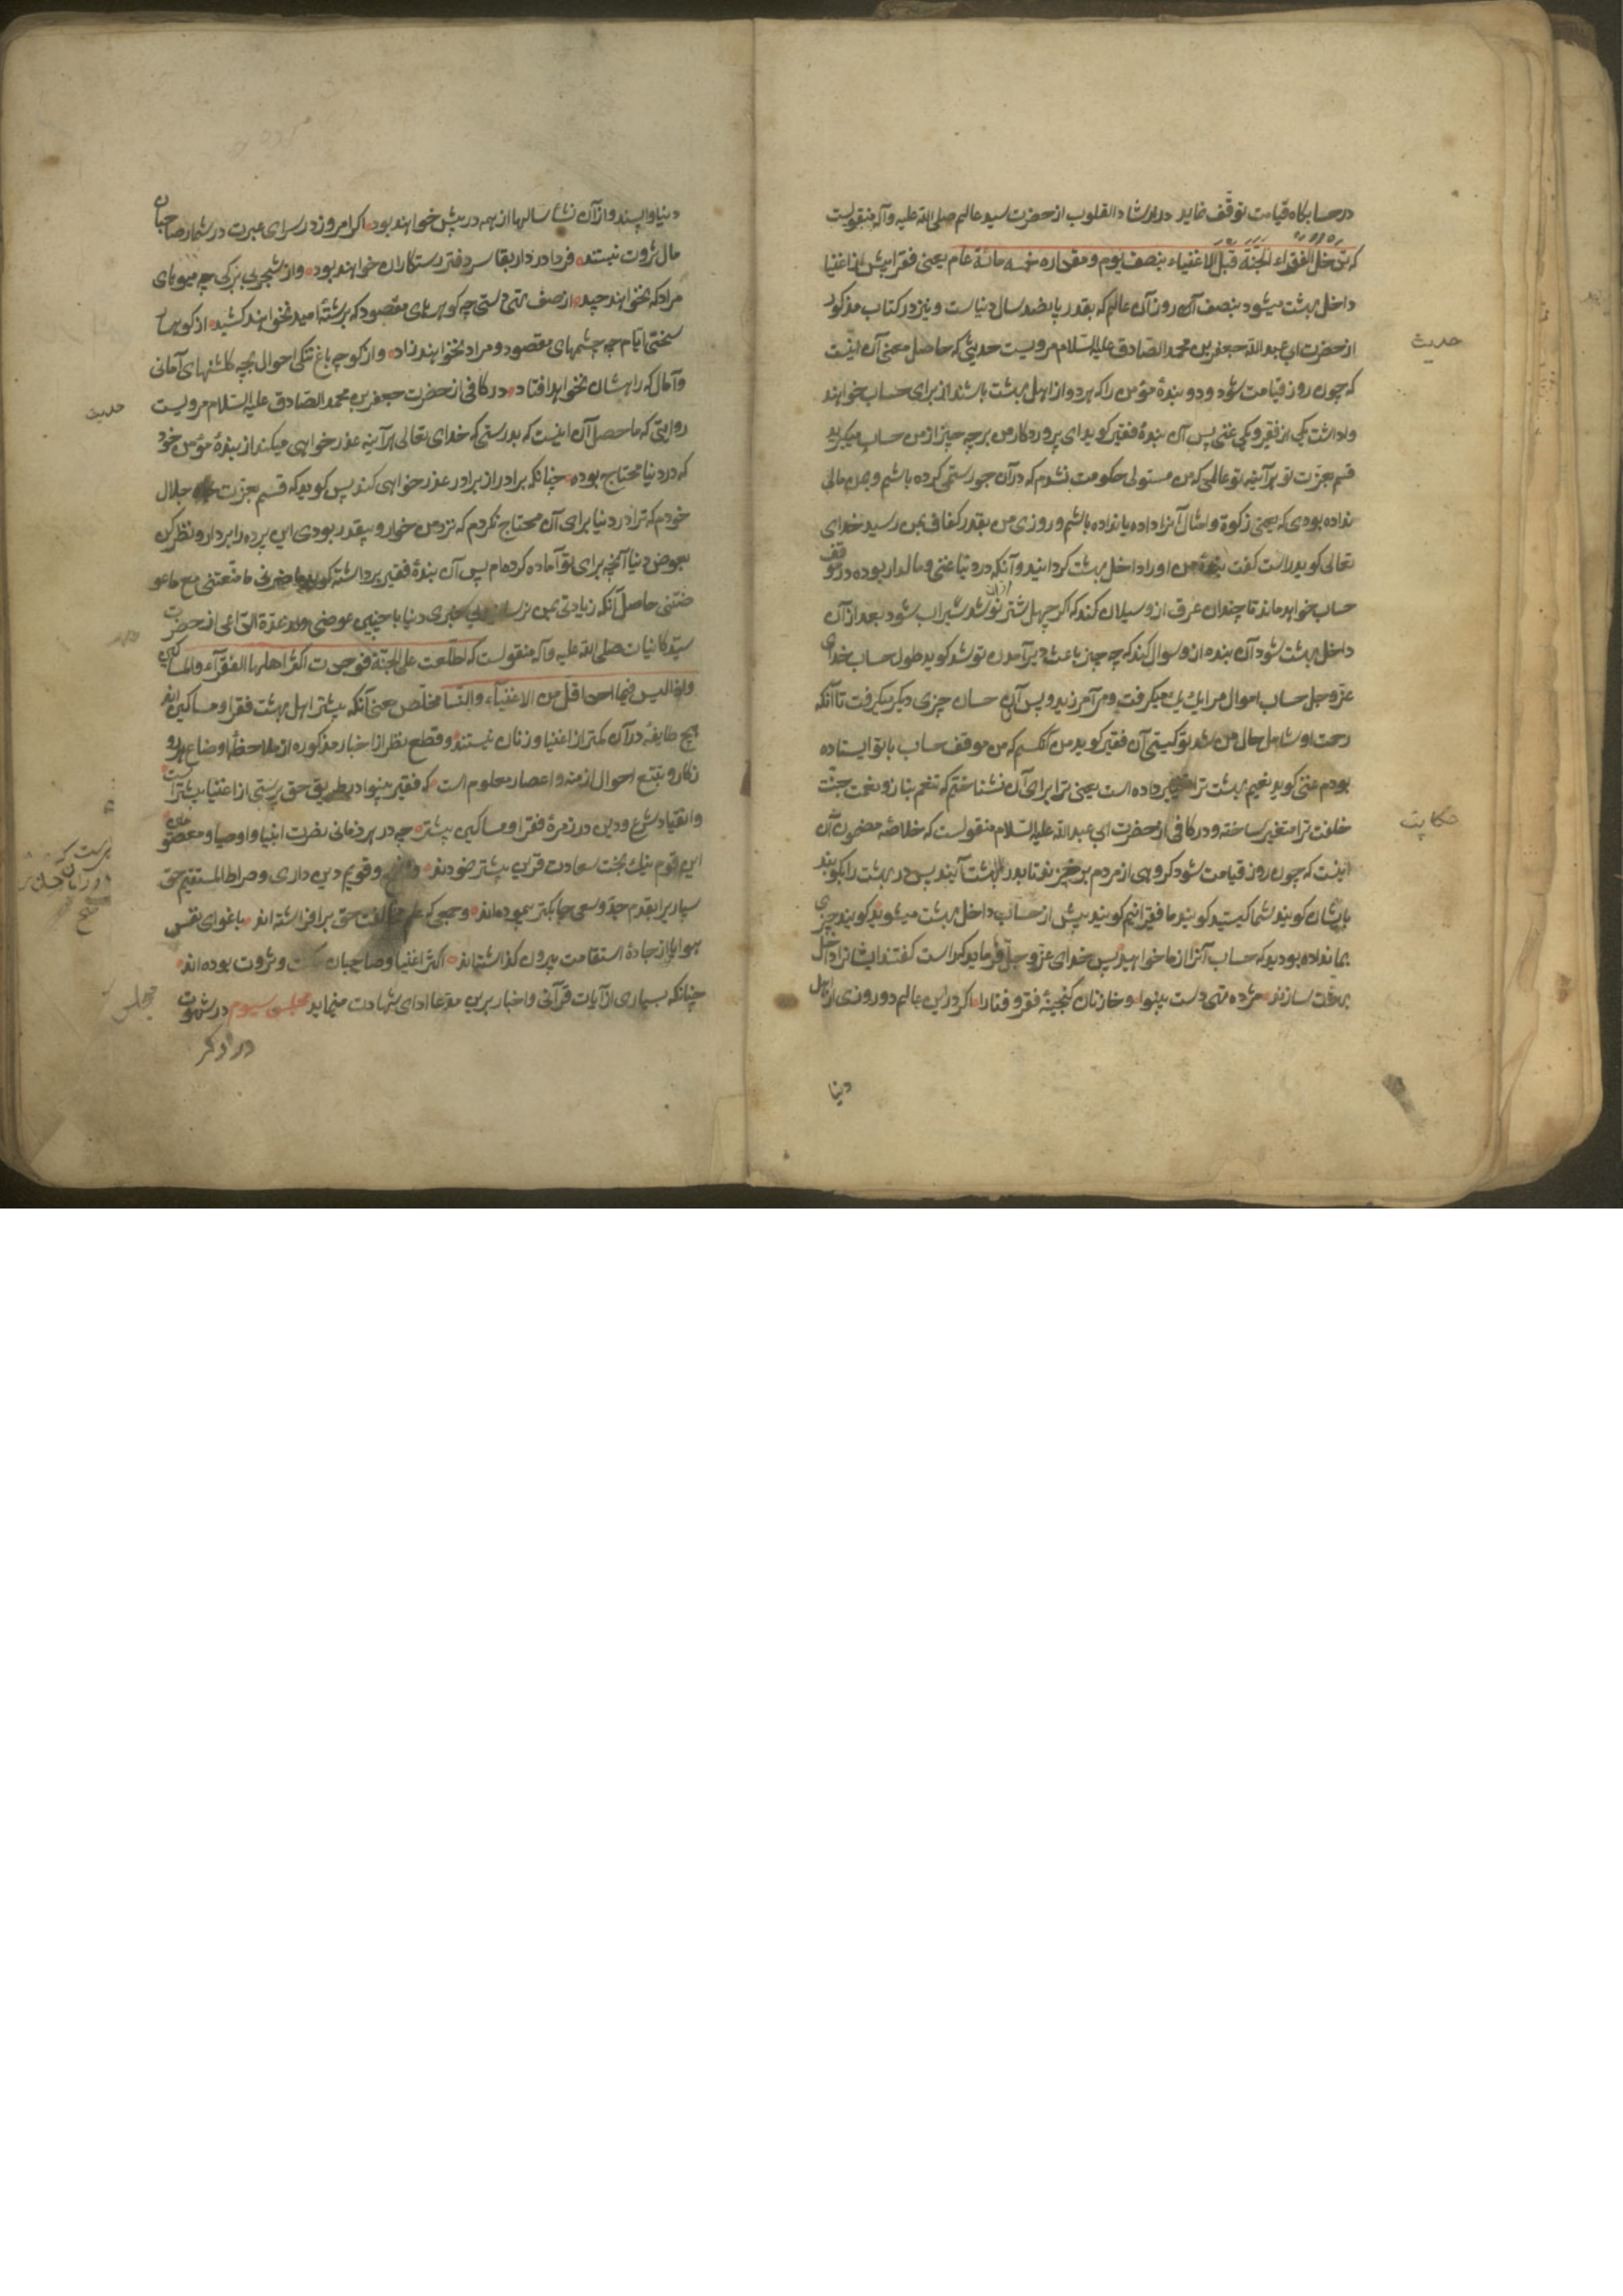 در حسابگاه قیامت توقف نماید در ارشاد القلوب از حضرت سید عالم صلی الله علیه وآله منقولست
که یدخل الفقراء الجنة قبل الاغنیاء بنصف یوم ومقداره خمسه مائة عام یعنی فقرا پیش از اغنیا
داخل بهشت میشود بنصف آن روز آن عالم که بقدر پانصد سال دنیاست ونیز در کتاب مذکور
حدیث
از حضرت ابی عبد الله جعفر بن محمد الصادق علیه السلام مرویست حدیثی که حاصل معنی آن اینست
که چون روز قیامت شود دو بندهٔ مؤمن را که هر دو از اهل بهشت باشند از برای حساب خواهند
واداشت یکی از فقیر و یکی غنی پس آن بندهٔ فقیر کوید ای پروردکار من بر چه چیز از من حساب میکیرید
قسم بعزت تو هر آینه تو عالمی که من مستولی حکومت نشدم که در آن جور ستمی کرده باشم و بمن مالی
نداده بودی که یعنی زکوة و امثال آنرا داده یا نداده باشم و روزی من بقدر کفاف بمن رسید خدای
تعالی کوید راست کفت بندهٔ من او را داخل بهشت کردانید و آنکه در دنیا غنی و مالدار بوده در موقف
حساب خواهد ماند تا چندان عرق از و سیلان کند که اکر چهل شتر از آن نوشد سیراب شود بعد از آن
داخل بهشت شود آن بنده از و سوال کند که چه چیز باعث دیر آمدن تو شد کوید طول حساب خدای
عز وجل حساب اموال مرا یك یك میکرفت و مرا میآمرزید و پس آن حساب چیزی دیکر میکرفت تا آنکه
رحمت او شامل حال من شد تو کیستی آن فقیر کوید من آنکسم که من موقف حساب با تو ایستاده
بودم غنی کوید نعیم بهشت ترا تغییر داده است یعنی ترا برای آن نشناختم که تنعم بناز و نعمت جنت
حکایت
خلقت ترا متغیر ساخته و در کافی از حضرت ابی عبد الله علیه السلام منقولست که خلاصه مضمون آن
اینست که چون روز قیامت شود کروهی از مردم برخیزند تا بدر بهشت آیند پس در بهشت را بکوبند
بایشان کویند شما کیستید کویند ما فقیرانیم کویند پیش از حساب داخل بهشت میشوید کویند چیزی
بما نداده بودید که حساب آنرا از ما خواهید پس خدای عز وجل فرماید که راست کفتند ایشانرا داخل
بهشت سازند مژده تهی دست بینوا و خازنان کنجینهٔ فقر و فنا را اکر درین عالم دو روزی از اهل
دنیا
دنیا واپسند و از آن نشأ سالها از همه در پیش خواهند بود اکر امروز در سرای عبرت در شمار صاحبان
مال ثروت نیستند فردا در دار بقا سر دفتر رستکاران خواهند بود و از شجر بی برکی چه میوهای
مراد که نخواهند چید از صدف تهی دستی چه کوهرهای مقصود که برشتهٔ امید نخواهند کشید از کوهسار
سختی ایام چه چشمهای مقصود و مراد نخواهند زاد و از کوچه باغ تنکی احوال بچه کلشنهای آمانی
حدیث
وآمال که راهشان نخواهد افتاد در کافی از حضرت جعفر بن محمد الصادق علیه السلام مرویست
روایتی که ما حصل آن اینست که بدرستی که خدای تعالی هر آینه عذر خواهی میکند از بندهٔ مؤمن خود
که در دنیا محتاج بوده چنانکه برادر از برادر عذر خواهی کند پس کوید که قسم بعزت جلال
خودم که ترا در دنیا برای آن محتاج نکردم که نزد من خوار و بیقدر بودی این پرده را بردار و نظر کن
بعوض دنیا آنچه برای تو آماده کرده‌ام پس آن بندهٔ فقیر پرده برداشته کوید ما ضرنی ما منعتنی مع ما عو
ضتنی حاصل آنکه زیادتی بمن نرسانید دنیا با چنین عوضی از حضرت
سید کاینات صلی الله علیه وآله منقولست که اطلعت علی الجنة فوجدت اکثر اهلها الفقرآء والمساکین
واذا لیس فیها احد اقل من الاغنیآء والنسا مخلص معنی آنکه بیشتر اهل بهشت فقرا و مساکین اند
هیچ طایفه در آن کمتر از اغنیا و زنان نیستند و قطع نظر از اخبار مذکوره از ملاحظهٔ اوضاع هر رو
زکار و تتبع احوال ازمنه و اعصار معلوم است که فقیر بینوا در طریق حق پرستی از اغنیا بیشتر است
وانقیاد شرع و دین در زمرهٔ فقرا و مساکین بیشتر چه در هر زمانی نصرت انبیا و اوصیا و معصومین
این قوم نیك بخت سعادت قرین بیشتر نمودند و قویم دین داری و صراط المستقیم حق
سپاریرا بقدم جد و سعی چابکتر پیموده‌اند و جمعی که علم مخالفت حق بر افراشته‌اند باغوای نفس
هوا پا از جادهٔ استقامت بیرون کذاشته‌اند اکثر اغنیا و صاحبان مکنت و ثروت بوده‌اند
چنانکه بسیاری از آیات قرآنی و اخبار برین مدعا ادای شهادت مینماید مجلس سیوم در شهوت
مجلس